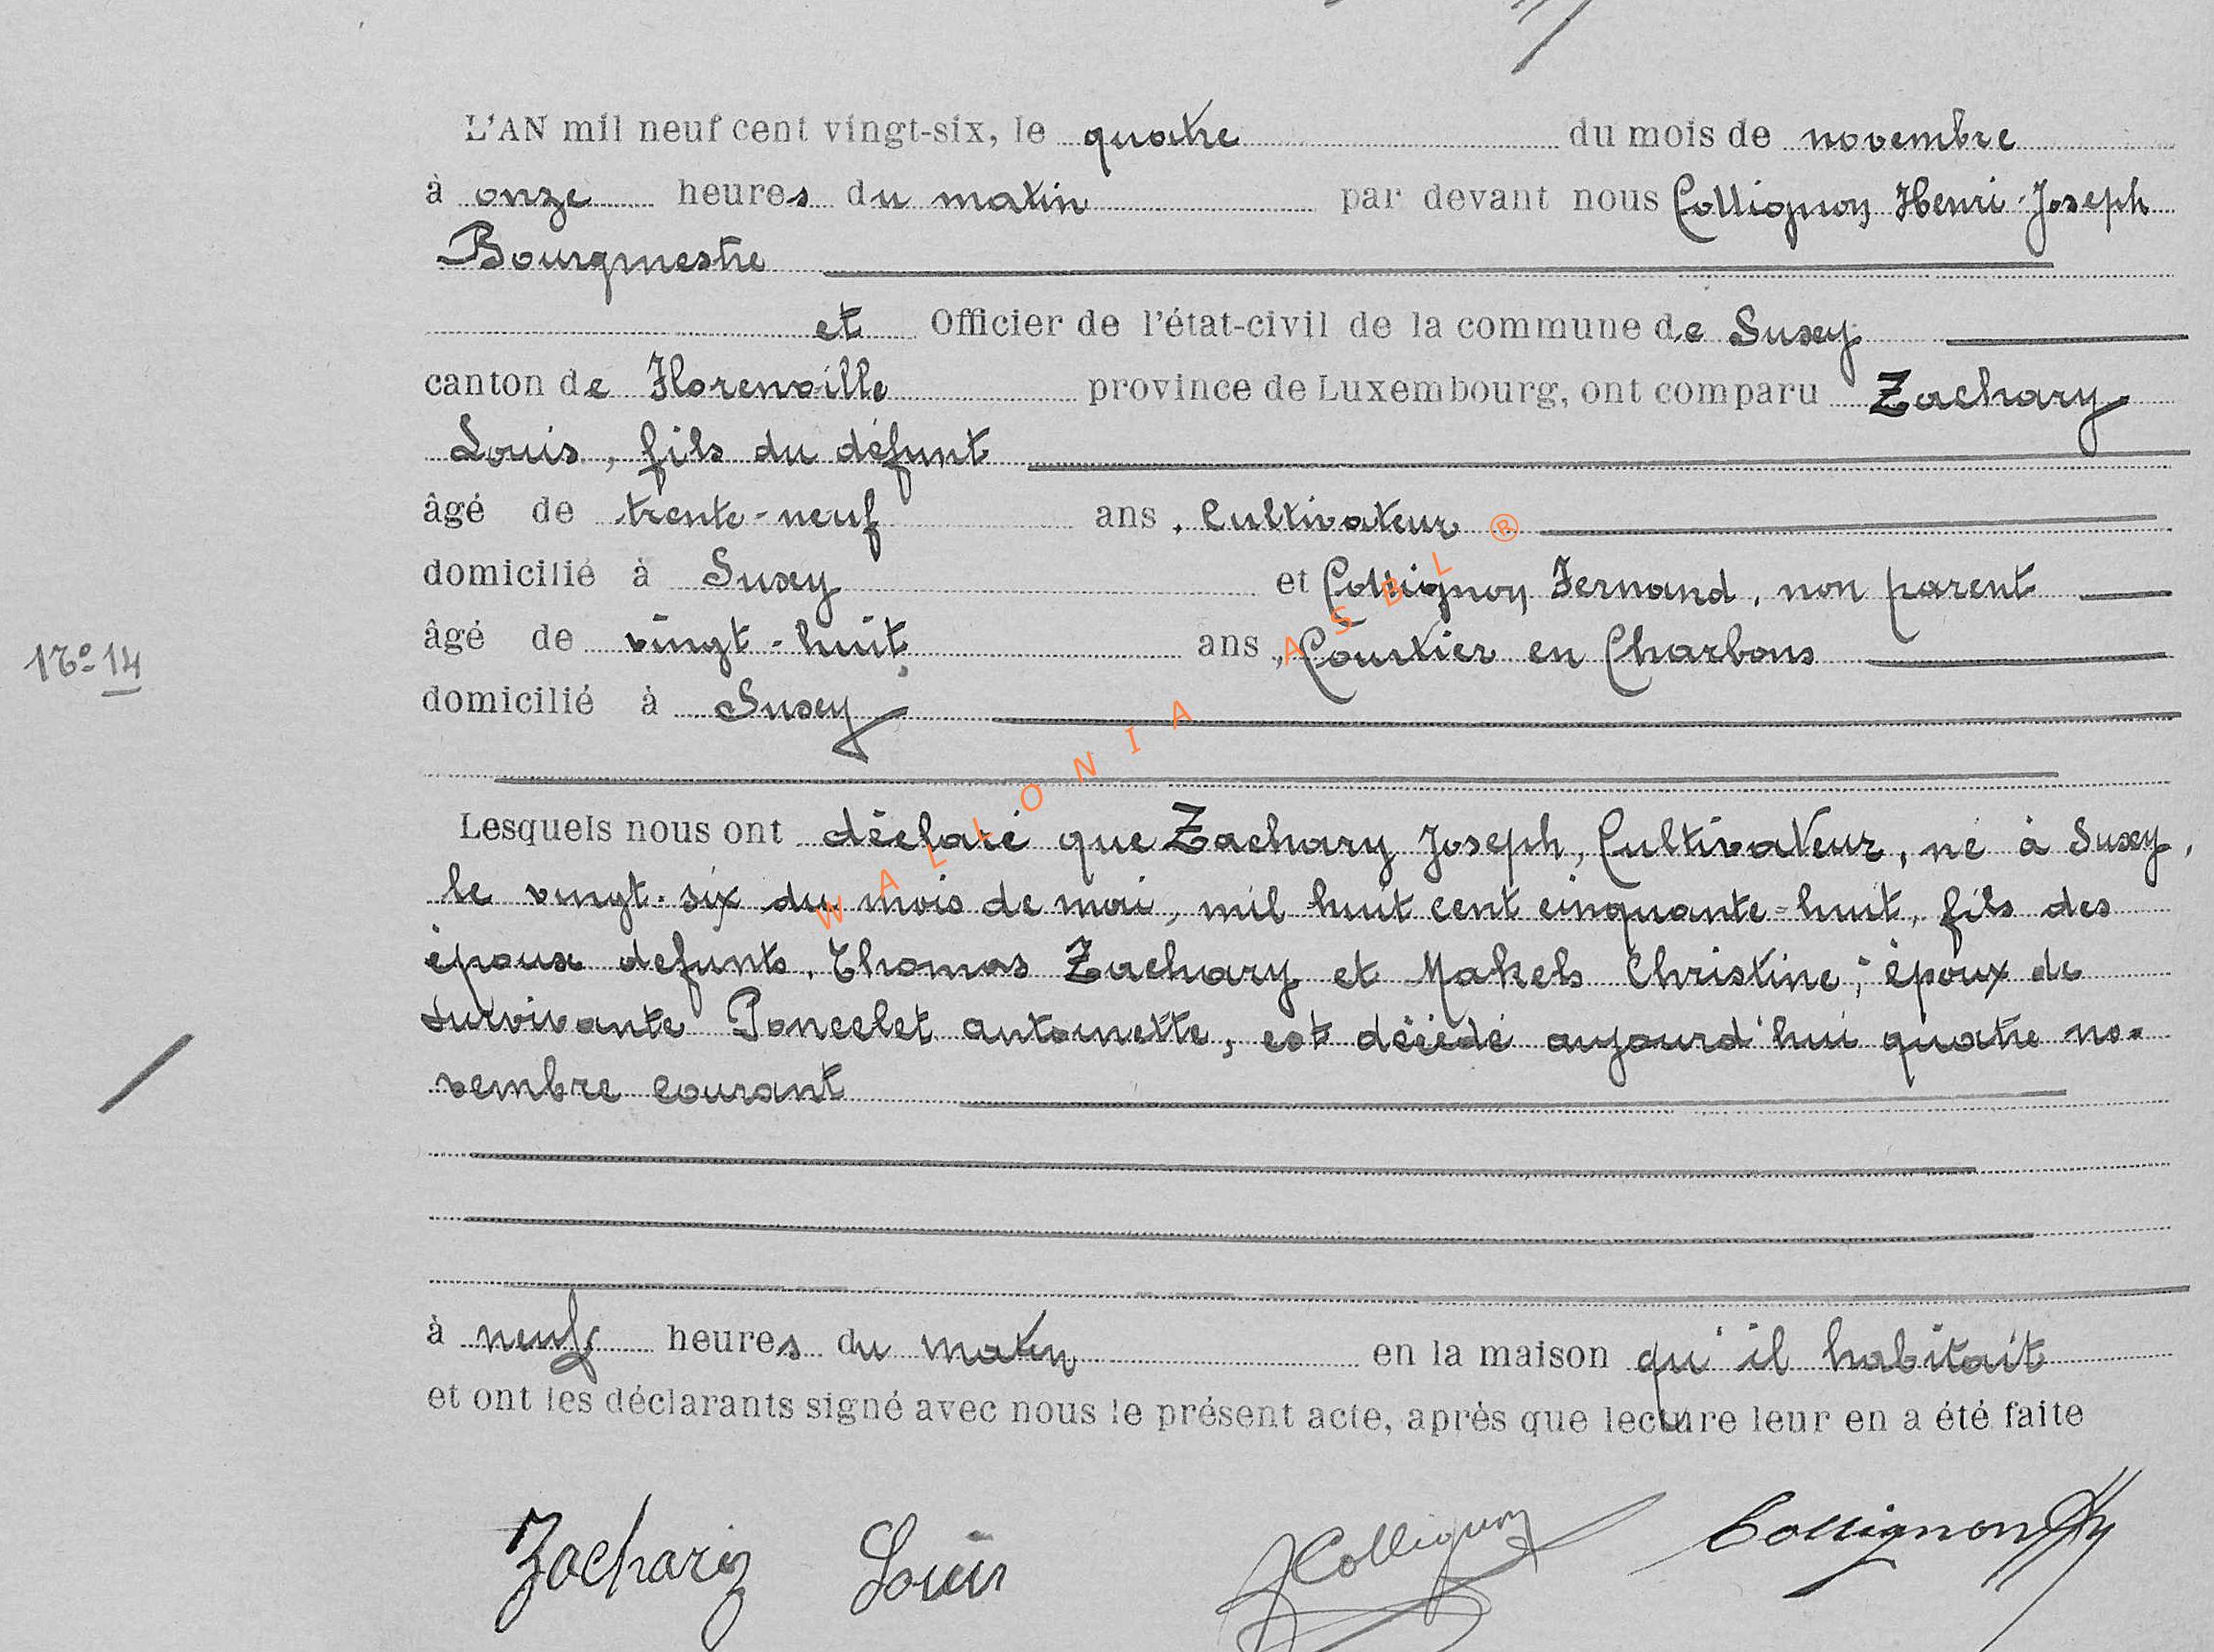 L'AN mil neuf cent vingt-six, le quatre du mois de novembre
à onze heures du matin par devant nous Collignon Henri-Joseph
Bourgmestre
et Officier de l'état-civil de la commune de Suxy
canton de Florenville province de Luxembourg, ont comparu Zachary
Louis, fils du défunt
âgé de trente-neuf ans, Cultivateur
domicilié à Suxy et Collignon Fernand, non parent
âgé de vingt-huit ans, Courtier en Charbons
N° 14
domicilié à Suxy
Lesquels nous ont déclaré que Zachary Joseph, Cultivateur, né à Suxy,
le vingt-six du mois de mai, mil huit cent cinquante-huit, fils des
époux defunts, Thomas Zachary et Makels Christine; époux de
survivante Poncelet antoinette, est décédé aujourd'hui quatre no-
vembre courant
à neuf heures du matin en la maison qu'il habitait
et ont les déclarants signé avec nous le présent acte, après que lecture leur en a été faite
Zachary Louis Collignon Collignon
WALLONIA ASBL ®